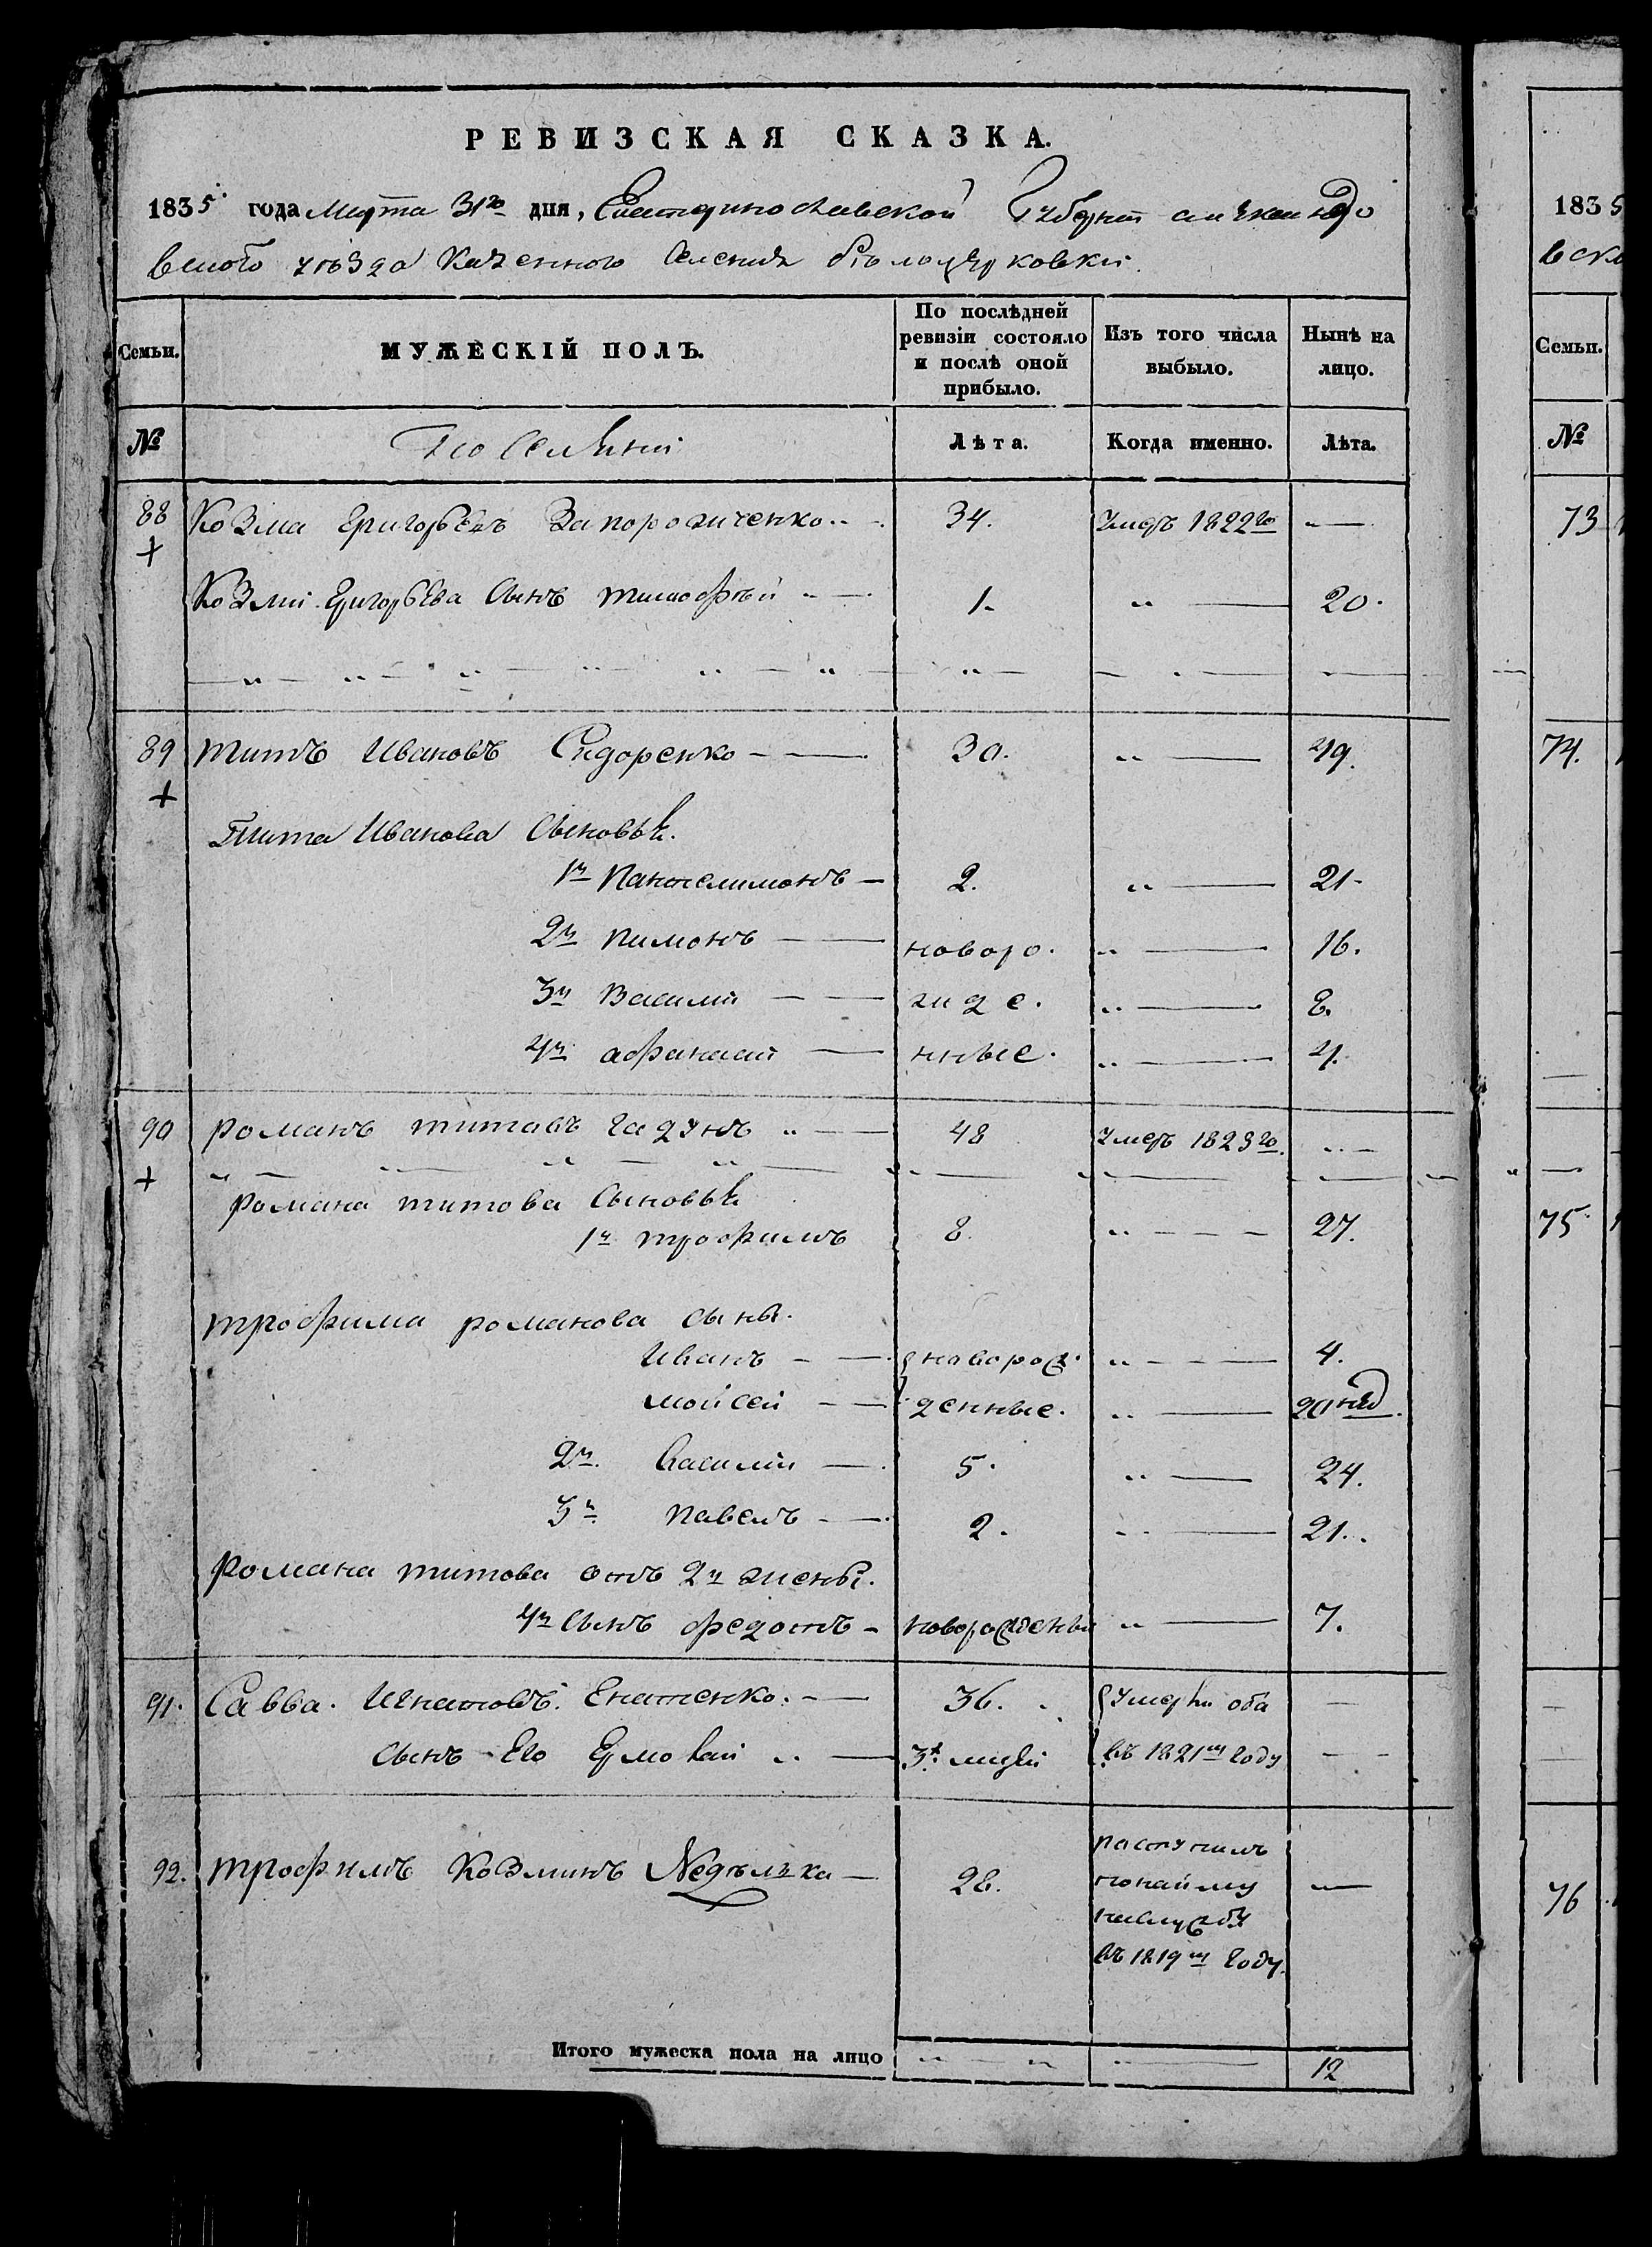 РЕВИЗСКАЯ СКАЗКА.
1835 года Марта 31го дня, Екатеринославской Губерніи александро
вскаго уѣзда Казенного Селенія бѣлоцерковки.
Семьи. МУЖЕСКІЙ ПОЛЪ. По послѣдней ревизіи состояло и послѣ оной прибыло. Изъ того числа выбыло. Нынѣ на лицо.
№ Поселяни Лѣта. Когда именно. Лѣта.
88 Козма Григорьевъ Запорожченко 34. умеръ 1822го
Козми Григорьева Сынъ тимофѣй 1. 20.
89 титъ Ивановъ Сидоренко 30. 49.
Тита Иванова Сыновья.
1й Пантелимонъ 2. 21.
2й пимонъ новоро 16.
3й Василій жде 8.
4й афанасий нные. 4.
90 романъ титовъ гадунъ 48 умеръ 1823го.
романа титова Сыновья
1й трофимъ 8. 27.
трофима романова сыны.
Иванъ { новорож 4.
мойсей денные. 20 нед.
2й Василій 5. 24.
3й павелъ 2. 21.
Романа титова отъ 2й жены.
4й Сынъ федотъ новорожденый 7.
91. Савва Игнатовъ Енатенко. 36. умерли оба
сынъ Его Ермолай въ 1821м году
92. трофимъ Козминъ Недѣлька 28. поступилъ
понайму
наслужбу
въ 1819м году.
Итого мужеска пола на лицо 12
1835
вска
Семьи.
№
73
74.
75
76